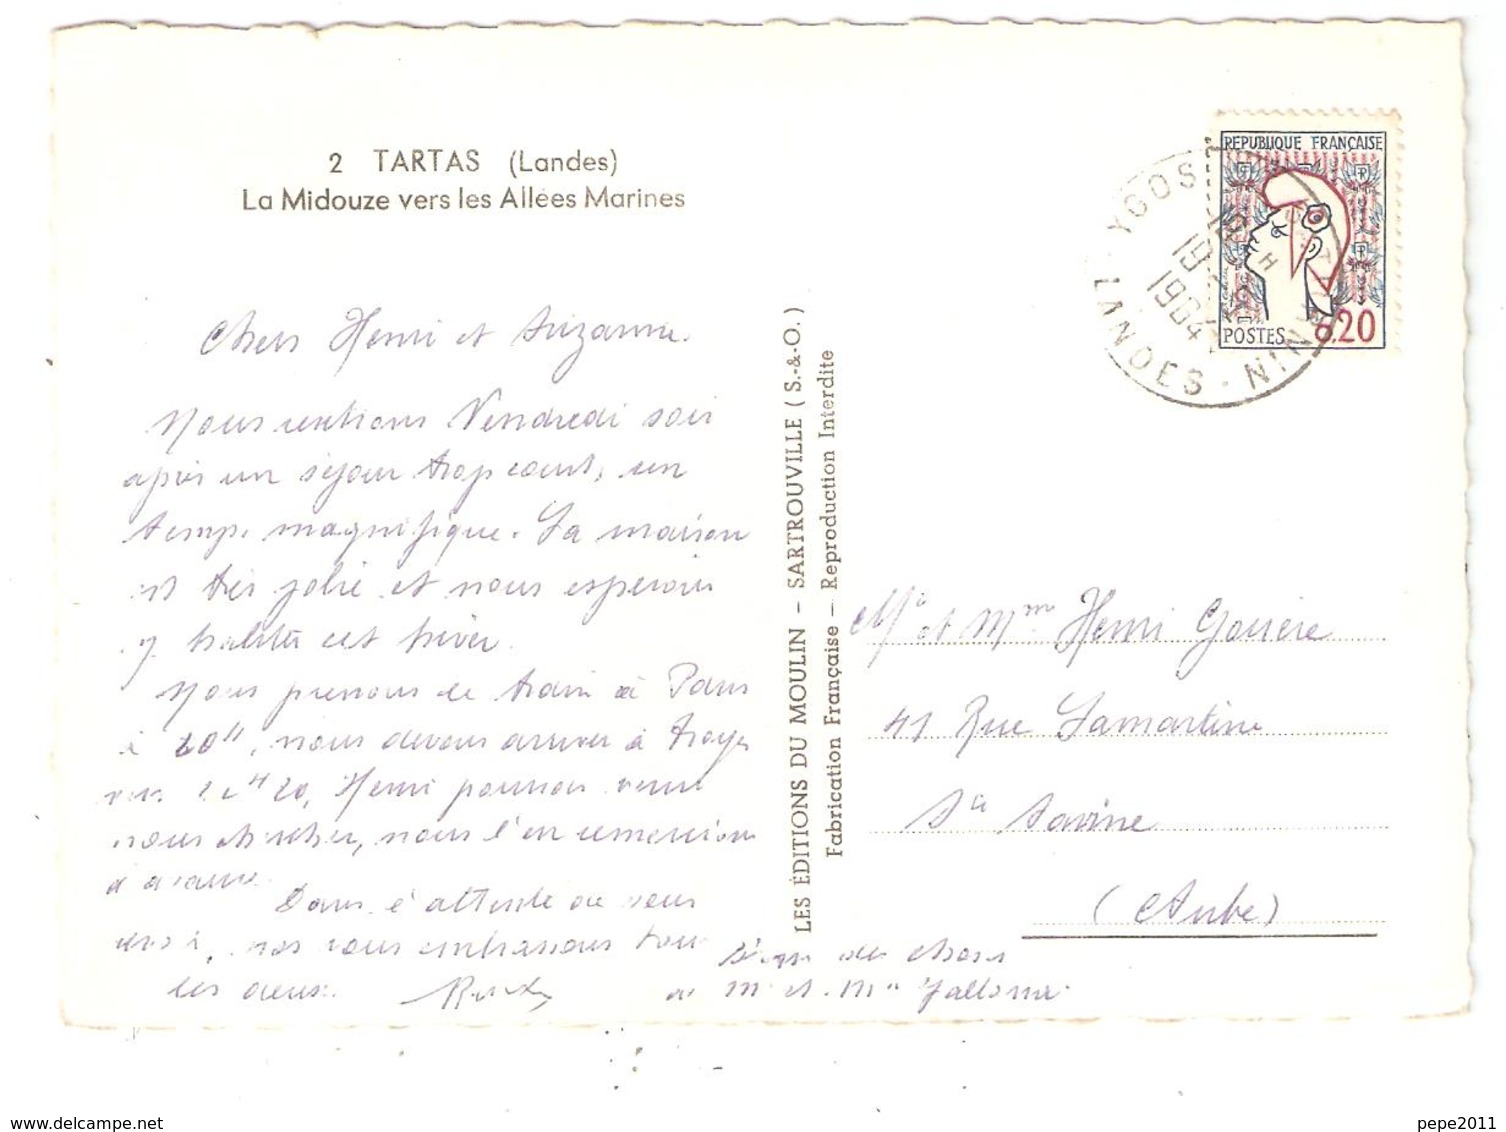 2 TARTAS (Landes)
La Midouze vers les Allées Marines
Chers Henri et Suzanne.
Nous rentrons Vendredi soir
après un séjour trop court, un
temps magnifique. La maison
est très jolie et nous espérons
y habiter cet hiver.
Nous prenons le train à Paris
à 20H, nous devons arriver à Troyes
vers H 20, Henri pourrons venir
nous chercher, nous l'en remercions
d'avance.
Dans l'attente de vous
nos vous embrassons tous
les deux.
des choses
à M et Mme
LES ÉDITIONS DU MOULIN - SARTROUVILLE (S.-&-O.)
Fabrication Française - Reproduction Interdite
REPUBLIQUE FRANÇAISE
POSTES 0.20
YGOS ST SATURNIN
LANDES
19
1964
Mr et Mme Henri Gorrère
41 Rue Lamartine
Ste Savine
(Aube)
delcampe.net
pepe2011